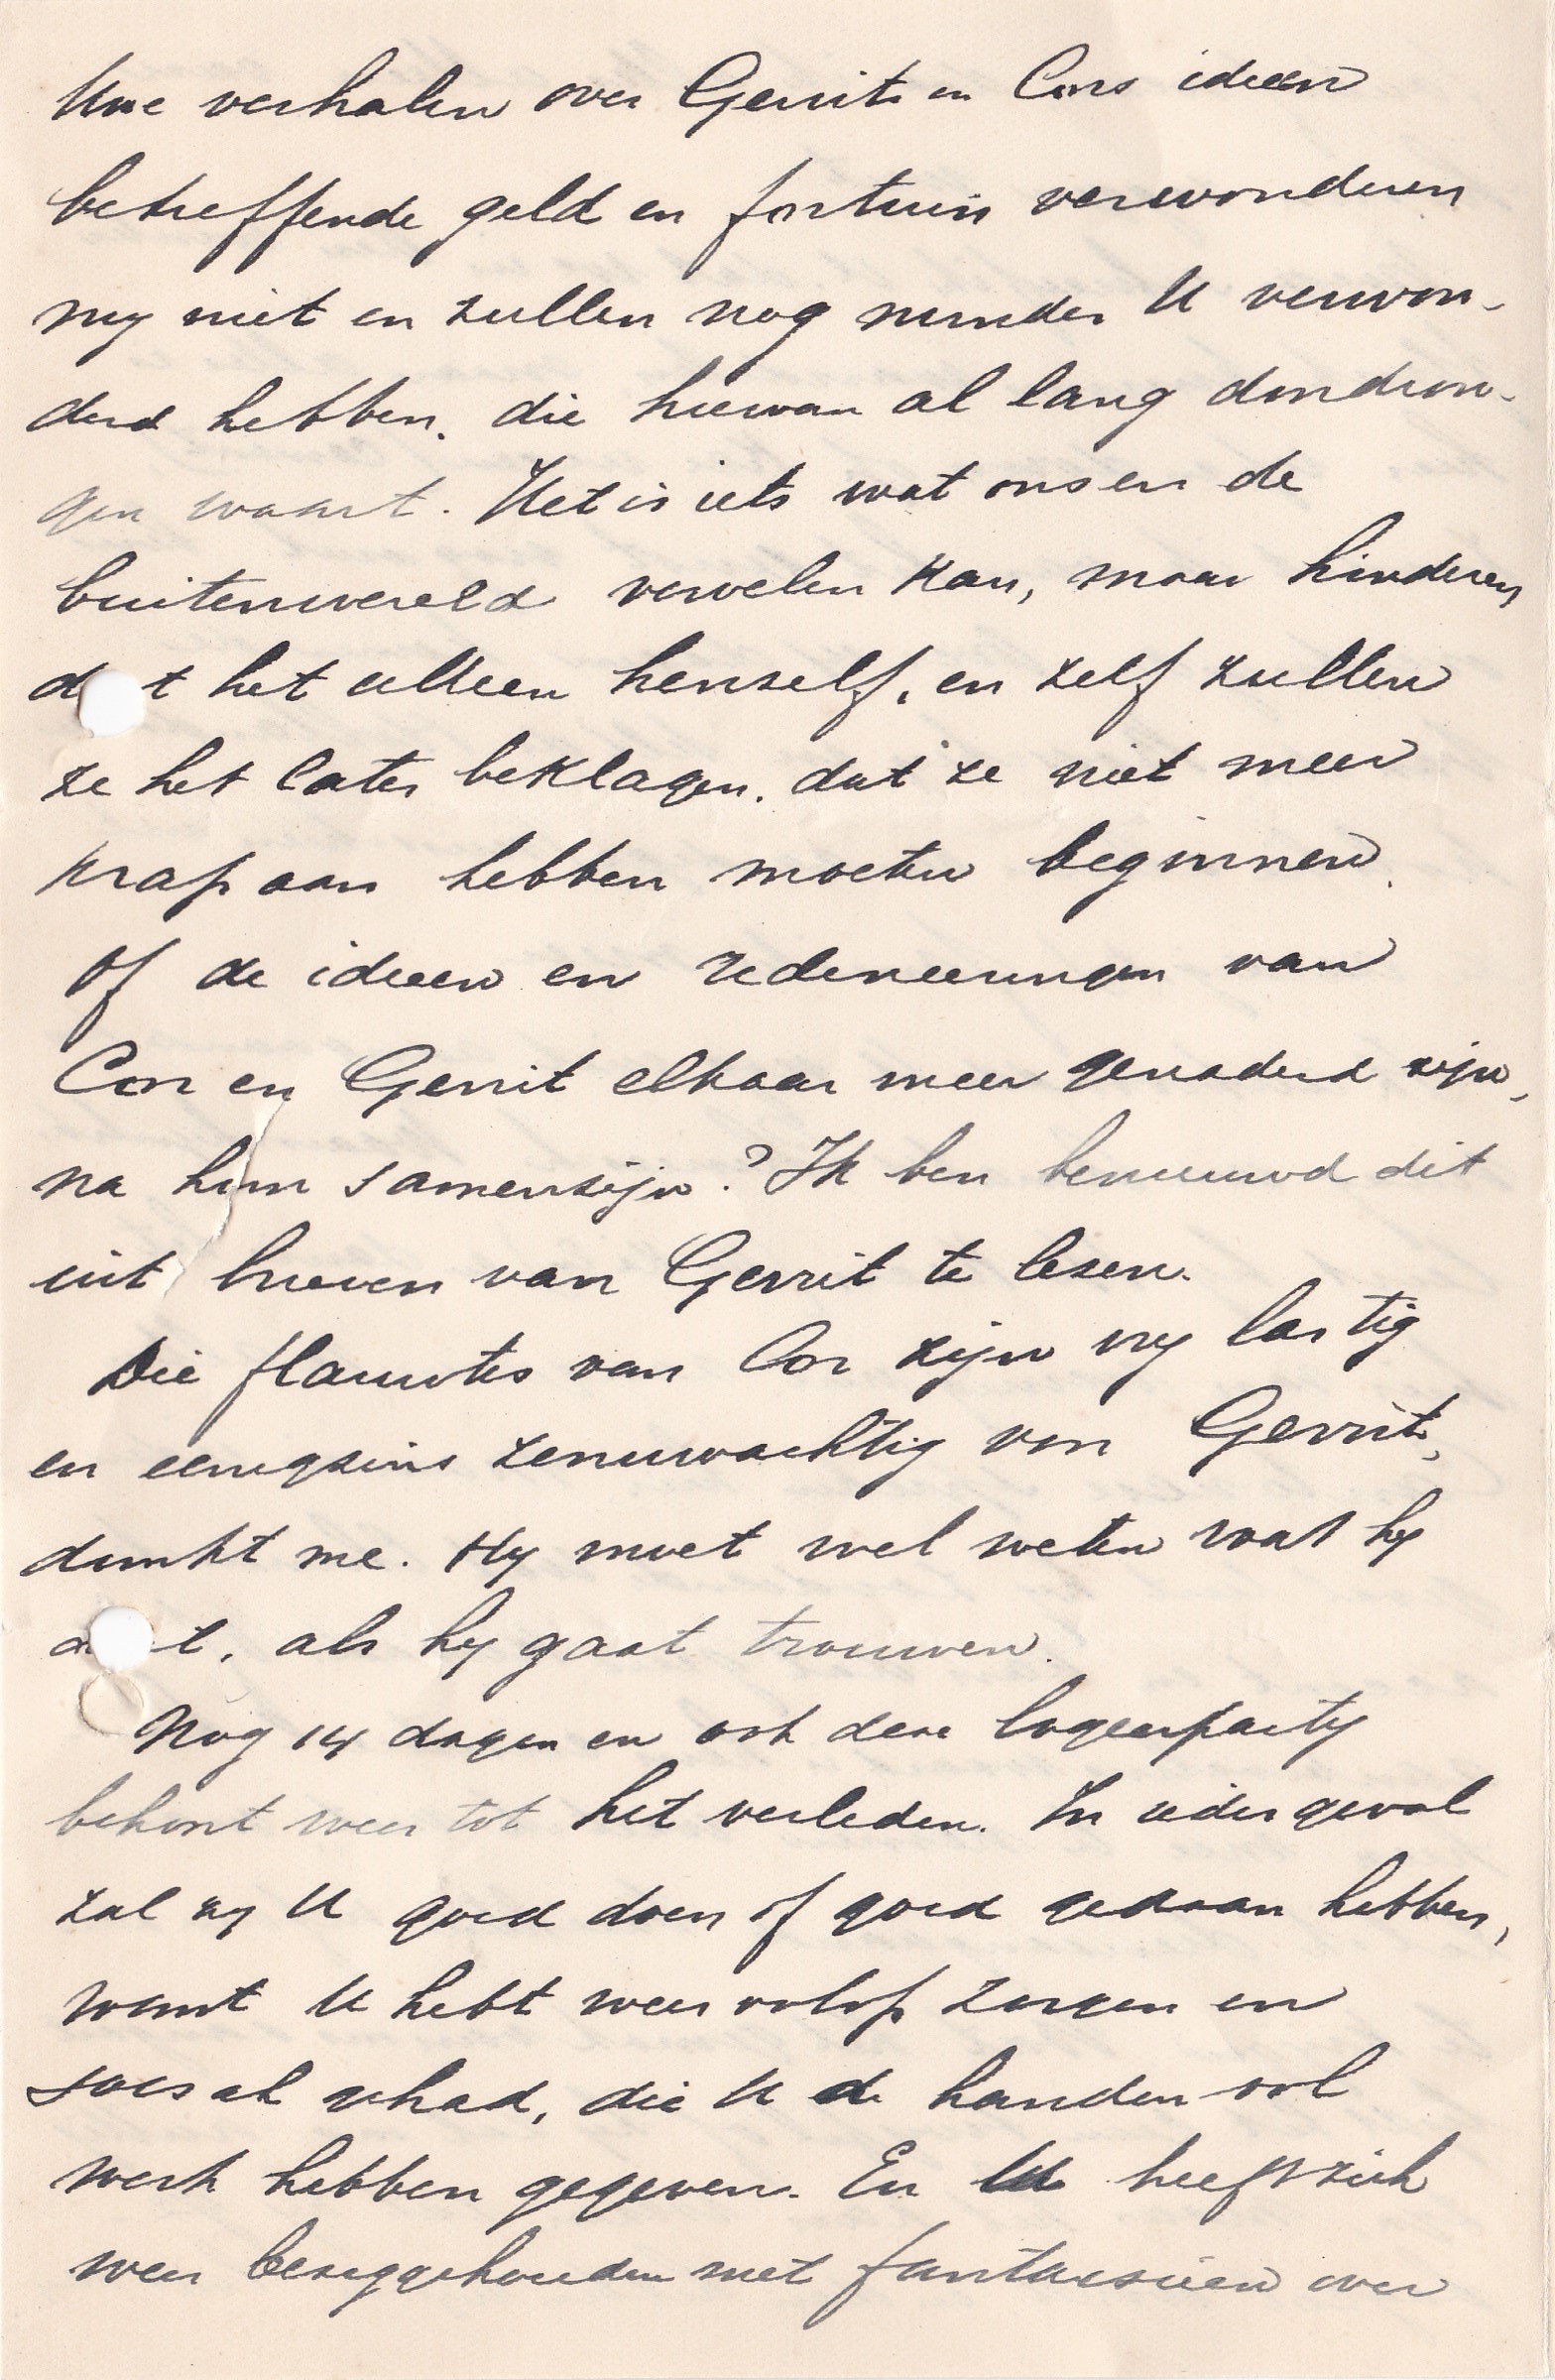 Uwe verhalen over Gerrits en Cors ideeen
betreffende geld en fortuin verwonderen
my niet en zullen nog minder U verwon-
derd hebben, die hiervan al lang doordron-
gen waart. Het is iets wat ons en de
buitenwereld vervelen kan, maar hinderen
d t het alleen henzelf, en zelf zullen
ze het later beklagen, dat ze niet meer
krap aan hebben moeten beginnen.
Of de ideeen en redeneeringen van
Cor en Gerrit elkaar meer genaderd zijn,
na hun samenzijn? Ik ben benieuwd dit
uit brieven van Gerrit te lezen.
Die flauwtes van Cor zijn vry lastig
en eenigszins zenuwachtig voor Gerrit,
dunkt me. Hy moet wel weten wat hy
d t, als hy gaat trouwen.
Nog 14 dagen en ook deze logeerparty
behoort weer tot het verleden. In ieder geval
zal zy U goed doen of goed gedaan hebben,
want U hebt weer volop zorgen en
gehad, die U de handen vol
werk hebben gegeven. En U heeft zich
weer beziggehouden met fantaisieen over